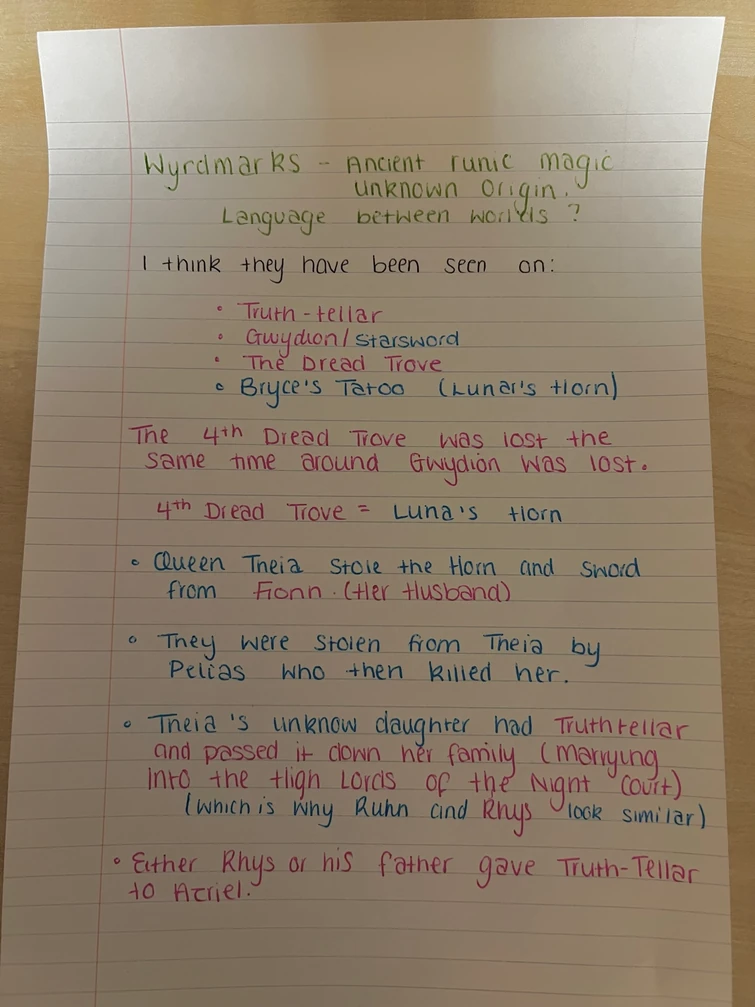 Wyrdmarks - Ancient runic magic
unknown origin.
Language between worlds ?
I think they have been seen on:
• Truth-tellar
• Gwydion/Starsword
• The Dread Trove
• Bryce's Tatoo (Lunar's Horn)
The 4th Dread Trove was lost the
same time around Gwydion was lost.
4th Dread Trove = Luna's Horn
• Queen Theia stole the Horn and sword
from Fionn. (Her Husband)
• They were stolen from Theia by
Pelias who then killed her.
• Theia's unknow daughter had Truthtellar
and passed it down her family (Marrying
into the High Lords of the Night Court)
(which is why Ruhn and Rhys look similar)
• Either Rhys or his father gave Truth-Tellar
to Azriel.